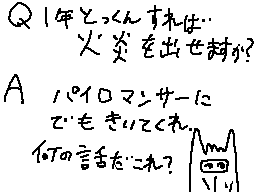 Q 1年とっくんすれば‥
火炎を出せますか?
A パイロマンサーに
でもきいてくれ。
何の話だこれ?